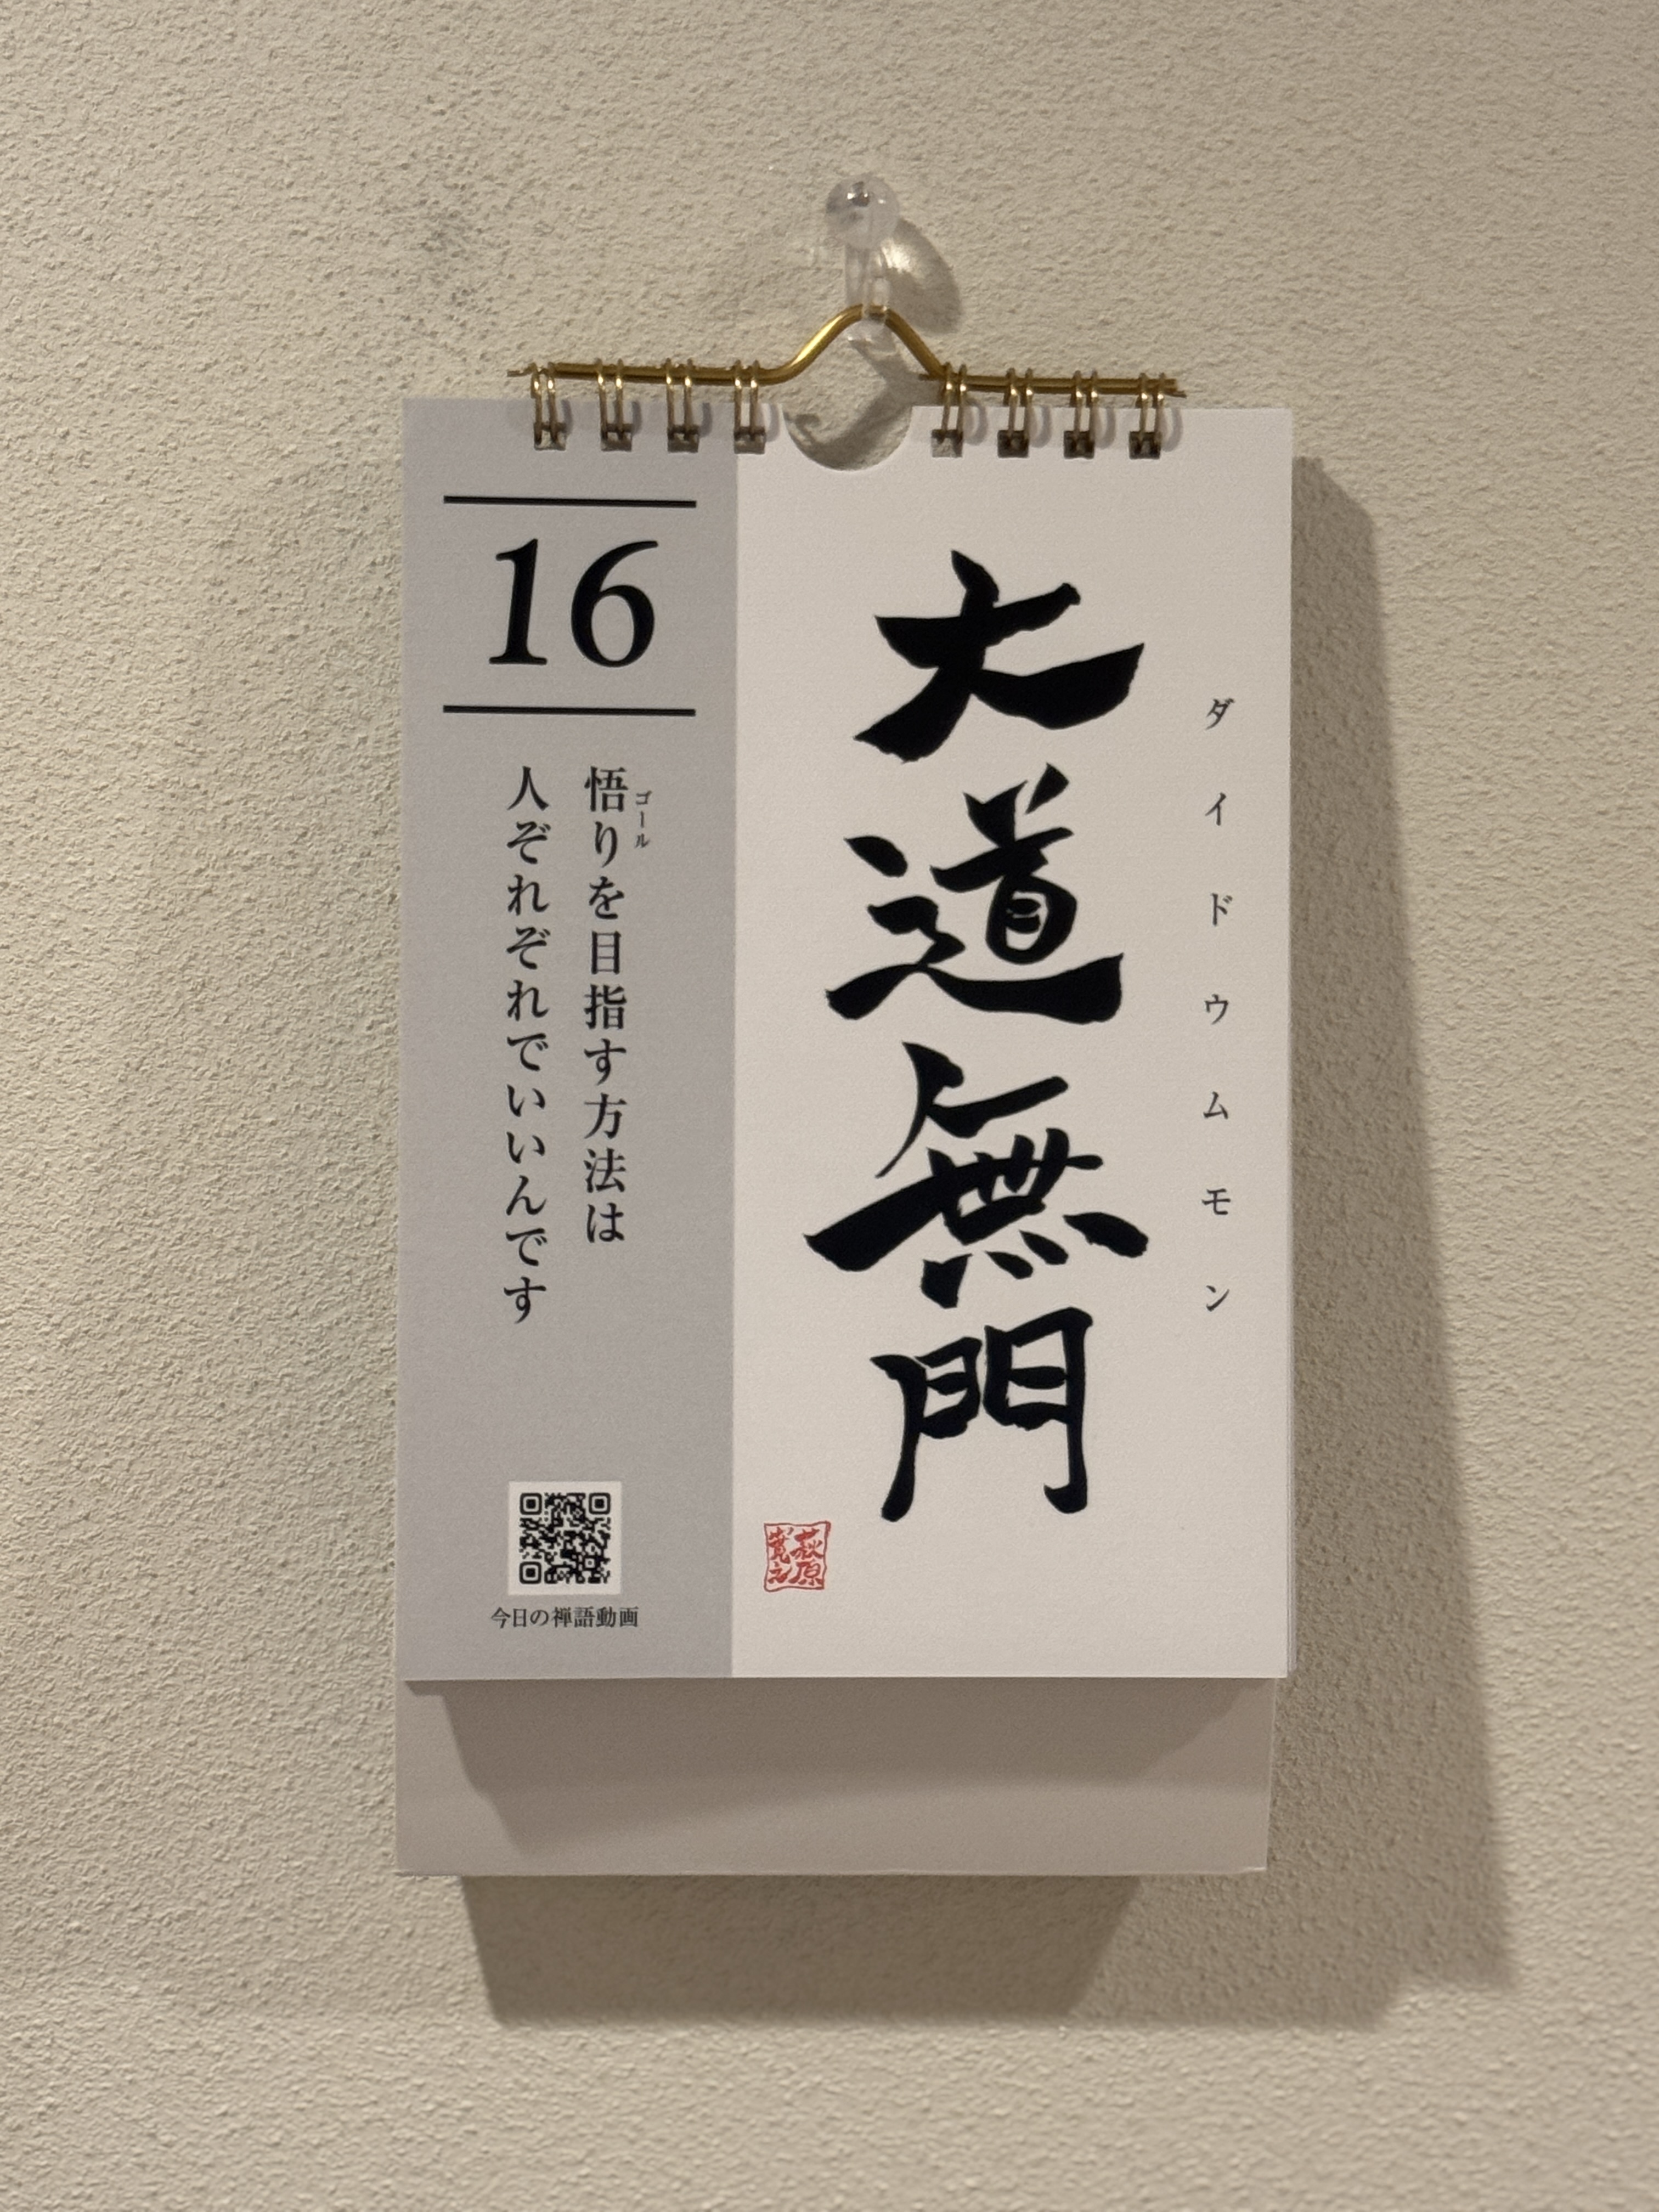 大道無門
ダイドウムモン
16
悟りを目指す方法は
ゴール
人ぞれぞれでいいんです
今日の禅語動画
萩原
寛之